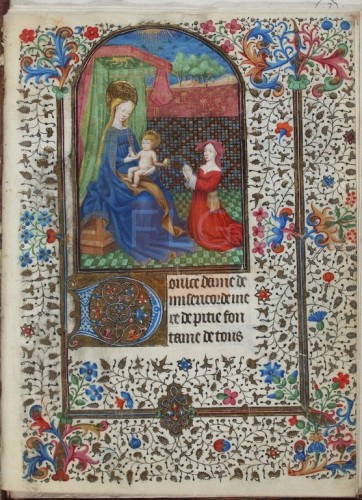 Doulce dame de
misericorde me
re de pitie fon
taine de tous
FLG